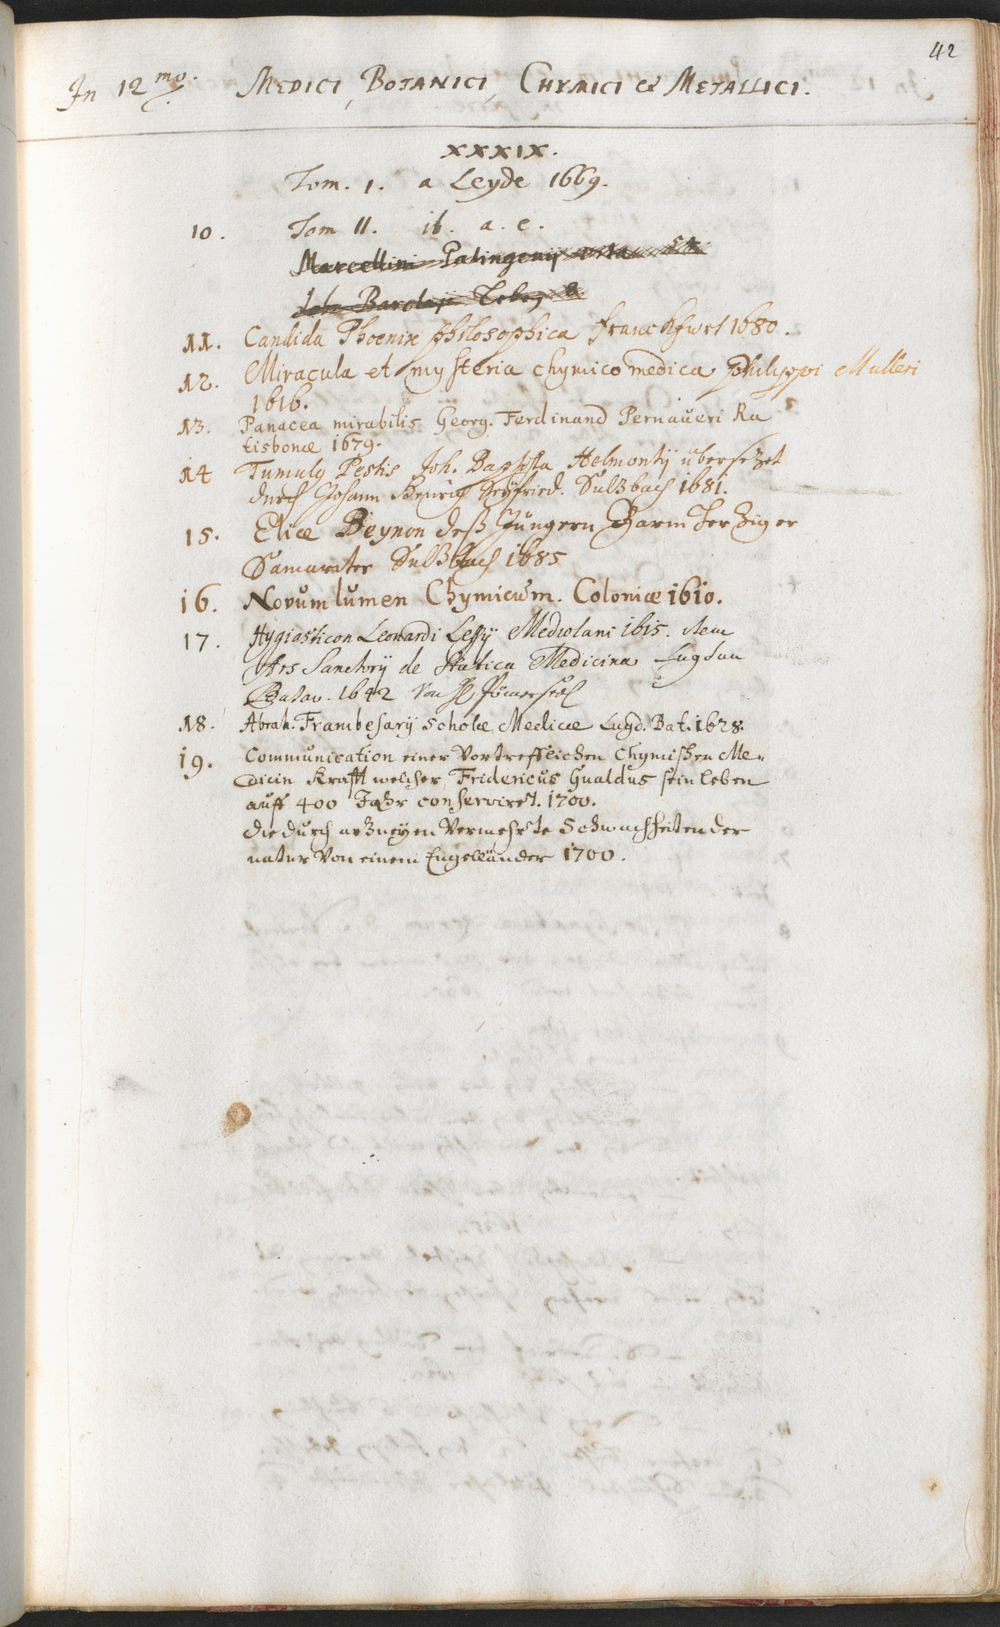 42
In 12mo. MEDICI, BOTANICI, CHYMICI & METALLICI.
XXXIX.
Tom. I. a Leyde 1669.
10. Tom II. ib. a. e.
Marcellini Palingenij
Joh. Barclaji
11. Candida Phoenix philosophica franckfurt 1680.
12. Miracula et mysteria chymico medica Philippi Mulleri
1616.
13. Panacea mirabilis Georg. Ferdinand Pernaueri Ra
tisbonæ 1679.
14 Tumulg Pestis Joh. Baptista Helmontij übersetzet
durch Johann Henrich Seyfried. Sultzbach 1681.
15. Eliæ Beynon deß Jüngern Barmhertziger
Samariter Sultzbach 1685
16. Novum lumen Chymicum. Coloniæ 1610.
17. Hygiasticon Leonardi Lessij Mediolani 1615. item
Ars Sanctorij de Statica Medicina Lugdun
Batav. 1642 Von H.
18. Abrah. Frambesarij Scholæ Medicæ Lugd. Bat. 1628.
19. Communication einer Vortrefflichen Chymischen Me-
dicin Krafft welcher Fridericus Gualdus sein leben
auff 400 Jahr conserviret. 1700.
die durch artzneyen Vermehrte Schwachheiten der
natur Von einem Engelländer 1700.